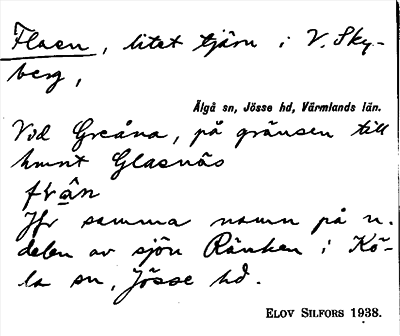 Flaen, litet tjärn i V. Sky-
berg,
Älgå sn, Jösse hd, Värmlands län.
Vid Greåna, på gränsen till
hmnt Glasnäs
från
Jfr samma namn på n.
delen av sjön Ränken i Kö-
la sn, Jösse hd.
ELOV SILFORS 1938.